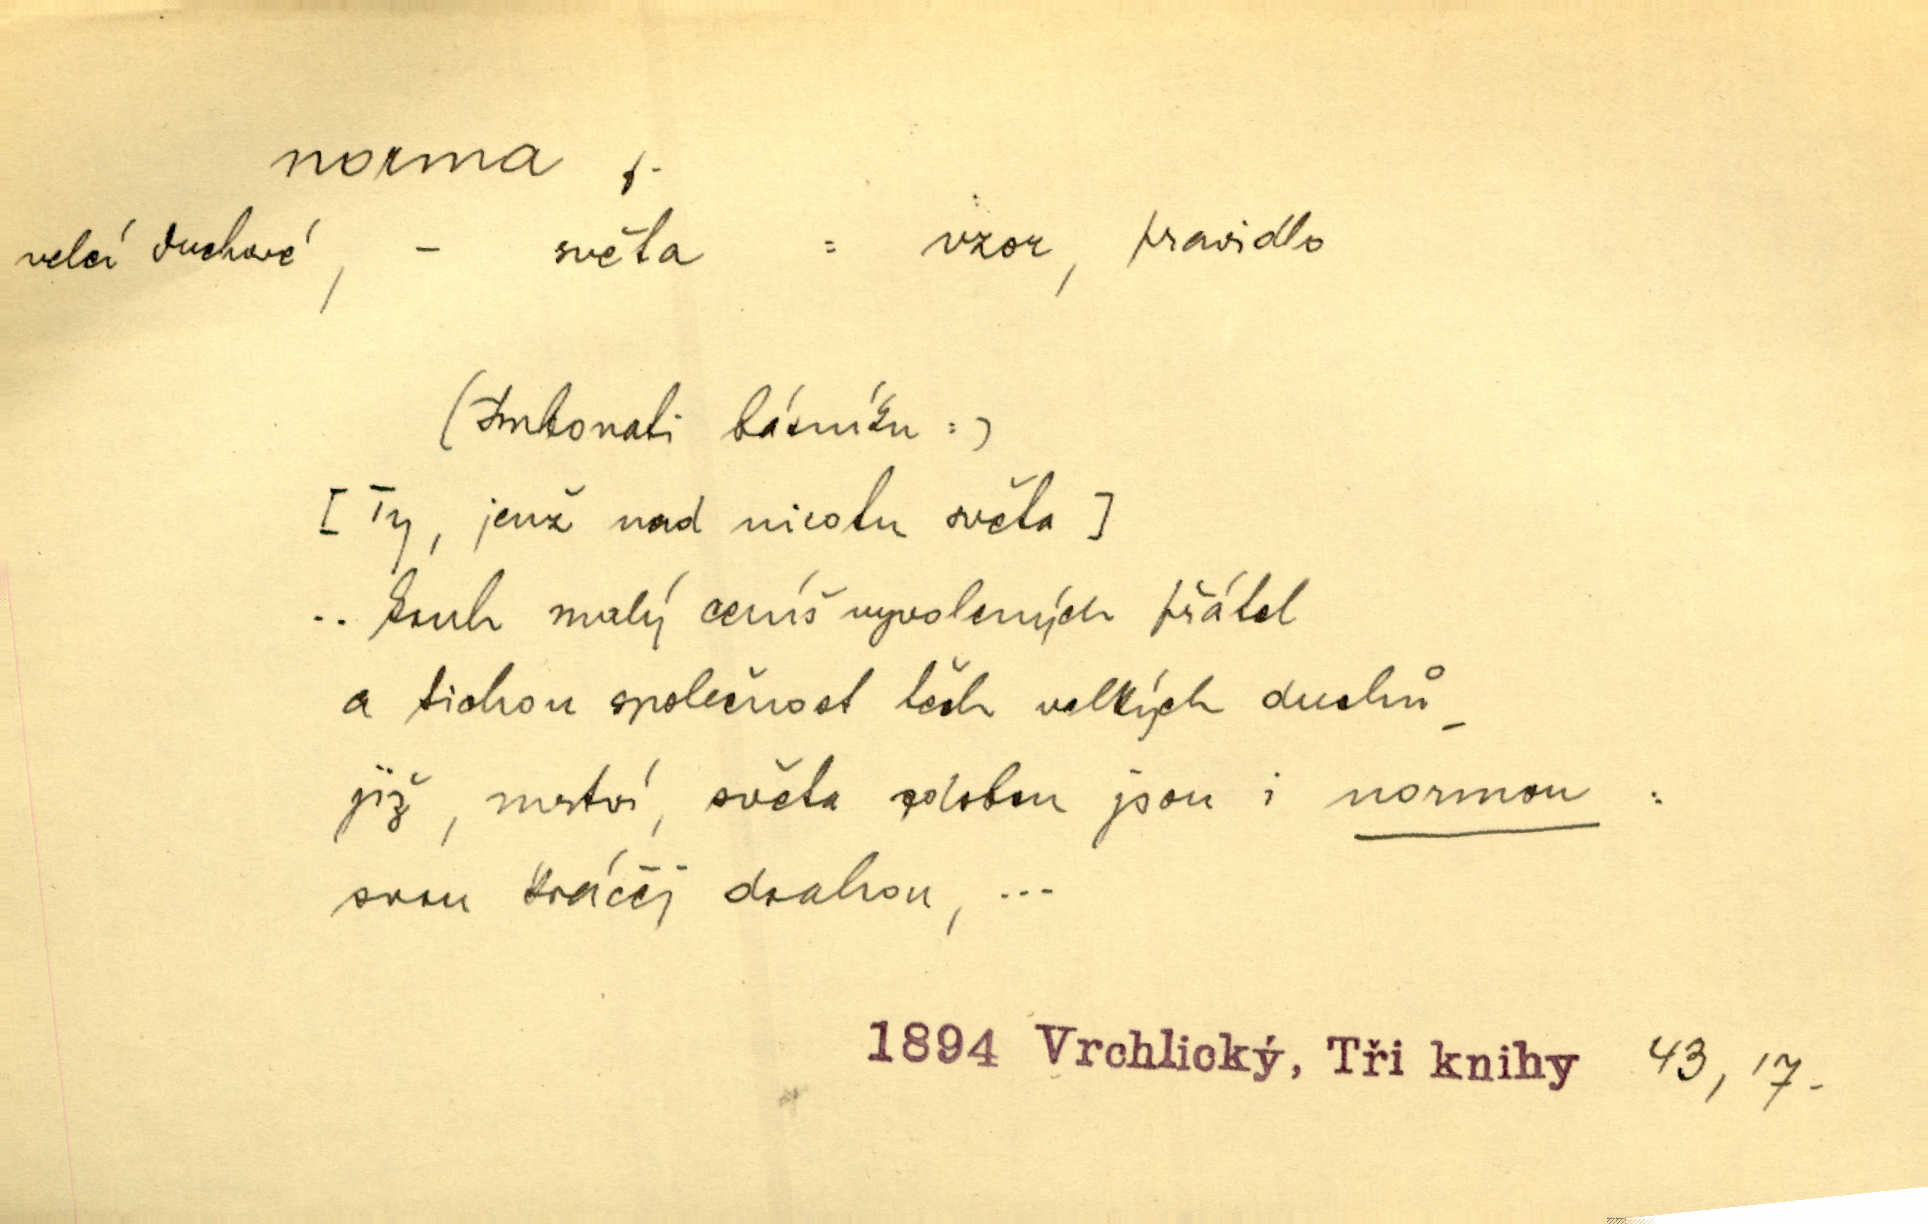 norma f.
velcí duchové, - světa = vzor, pravidlo
básníku :)
[Ty, jenž nad nicotu světa]
.. kruh malý ceníš vyvolených přátel
a tichou společnost těch velkých duchů,
již, mrtvi, světa ozdobou jsou i normou :
svou kráčej drahou, ...
1894 Vrchlický, Tři knihy 43, 17.